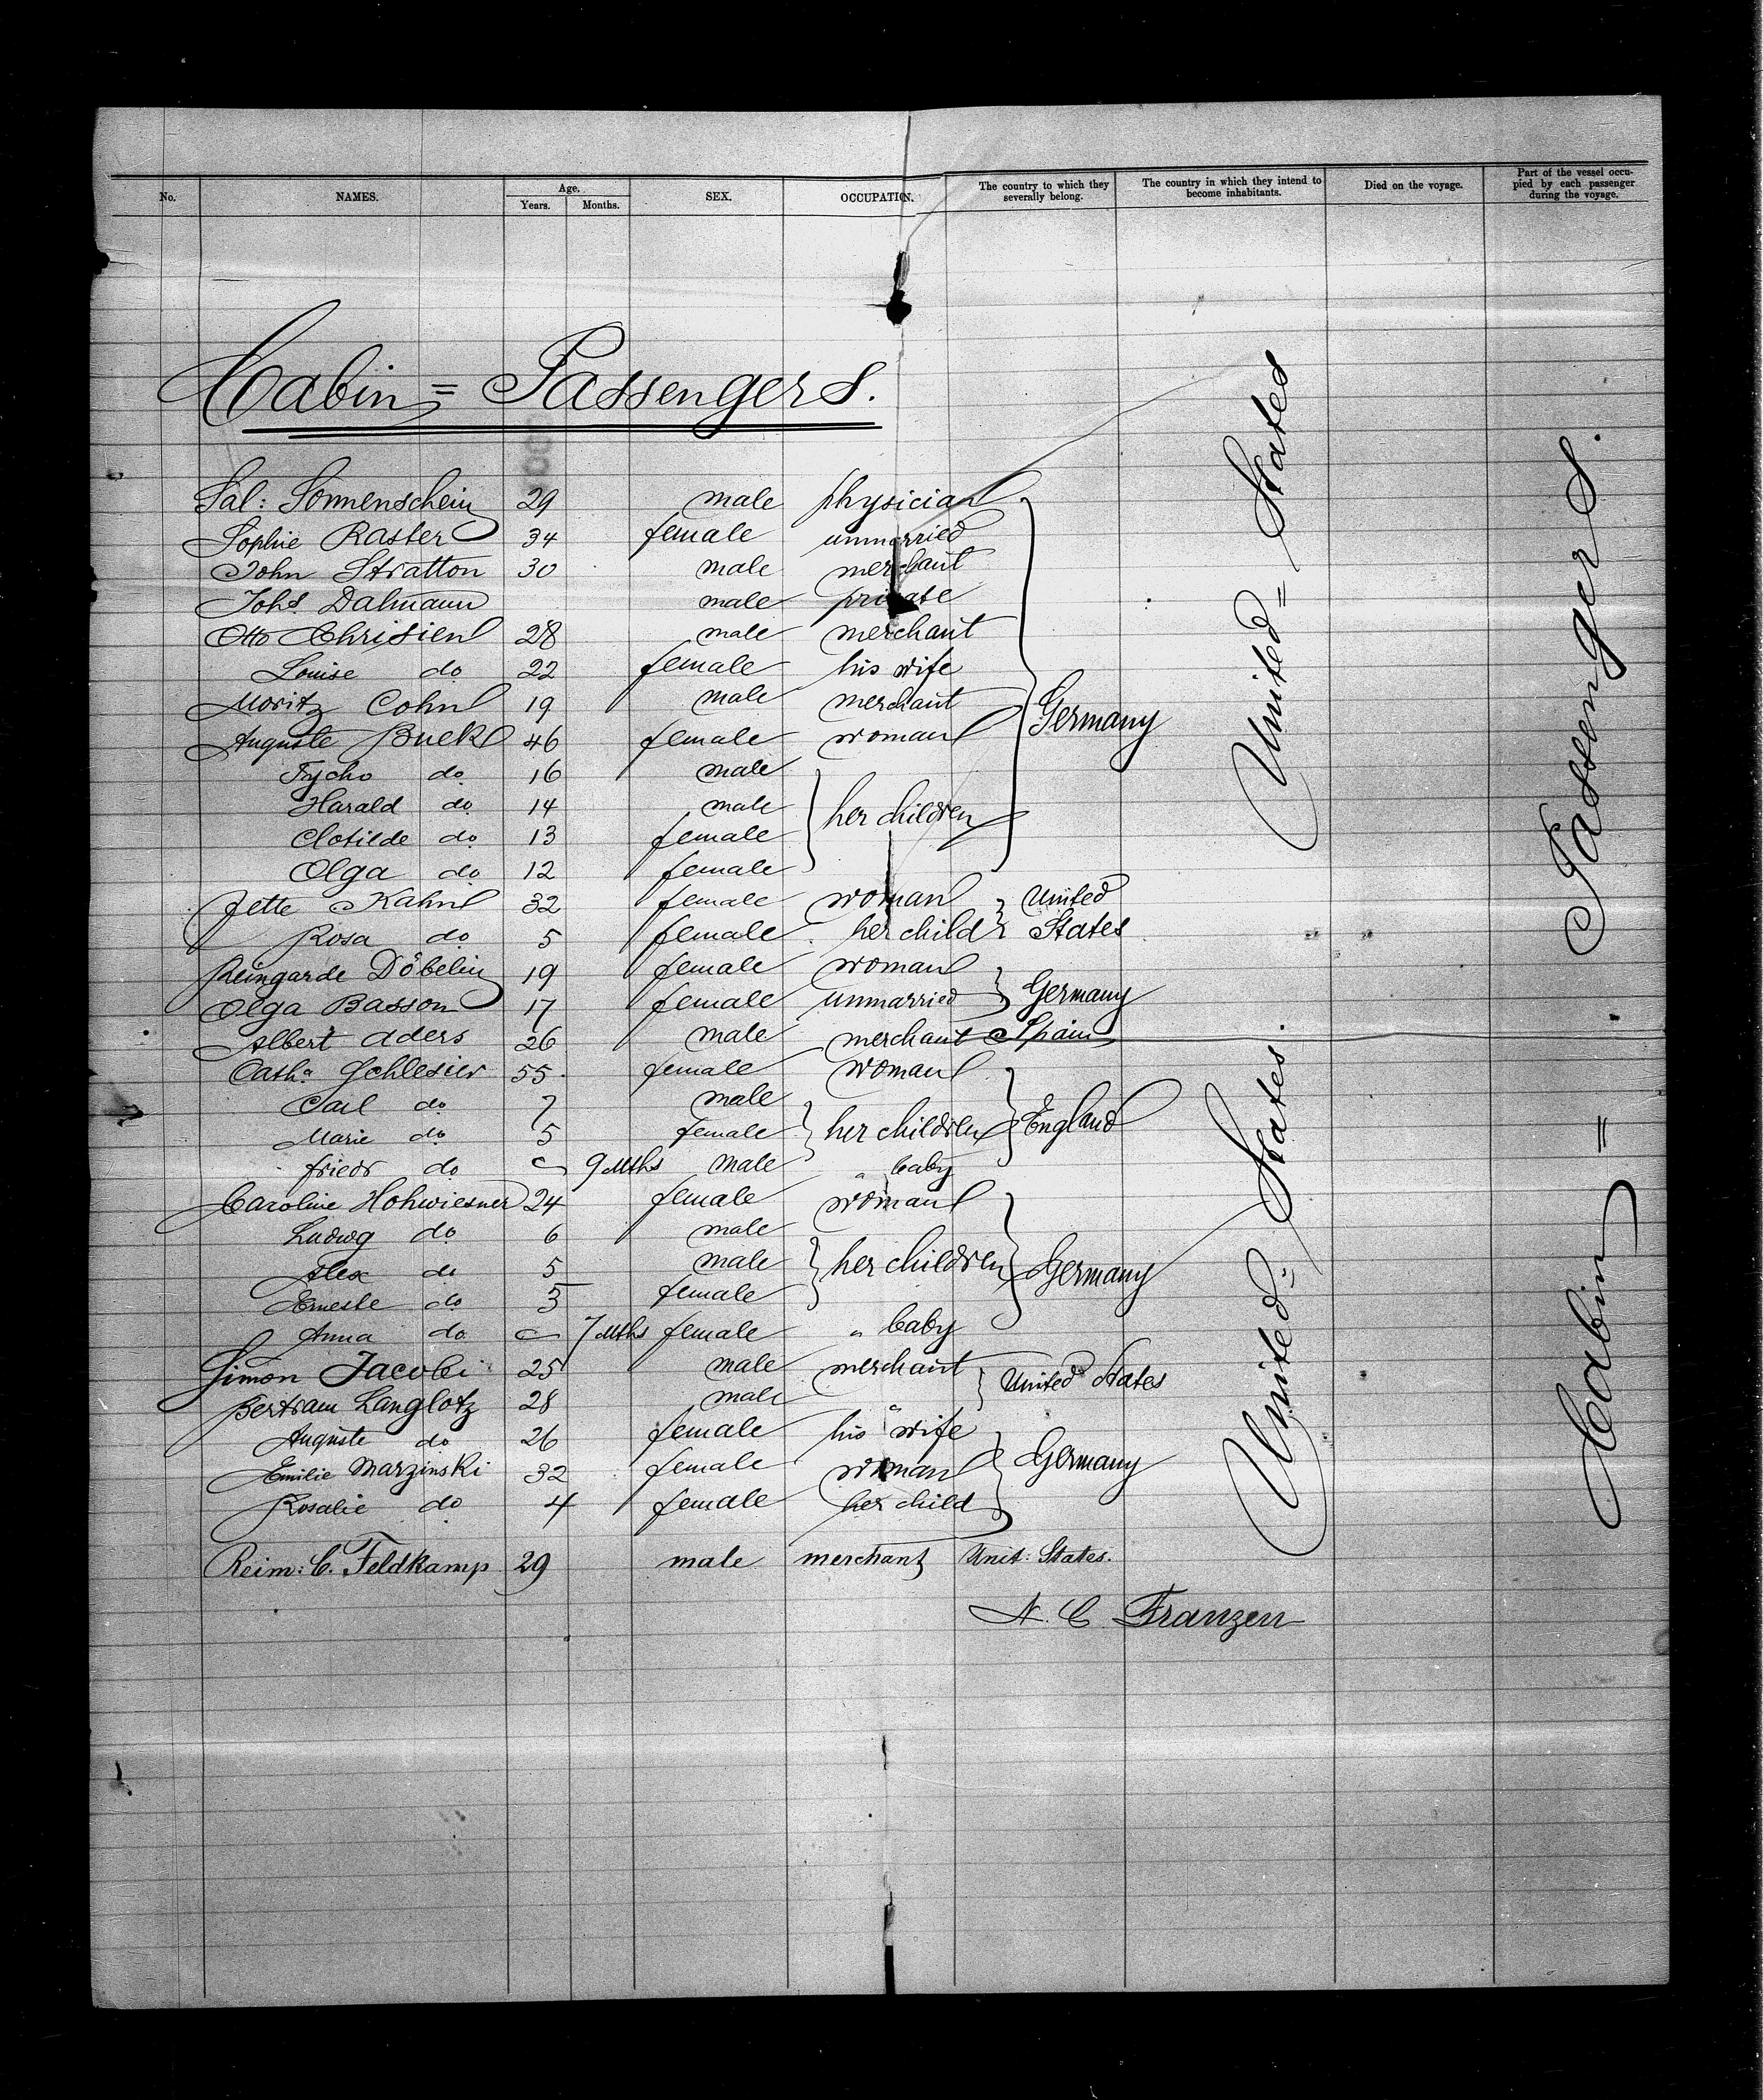 No. NAMES. Age. Years. Months. SEX. OCCUPATION. The country to which they severally belong. The country in which they intend to become inhabitants. Died on the voyage. Part of the vessel occupied by each passenger during the voyage.
Cabin = Passengers.
Sal: Sonnenschein 29 male physician
Sophie Raster 34 female unmarried
John Stratton 30 male merchant
Johs Dalmann male private
Otto Chrisien 28 male merchant
Louise do 22 female his wife
Moritz Cohn 19 male merchant Germany
Auguste Buek 46 female woman
Tycho do 16 male
Harald do 14 male her children
Clotilde do 13 female
Olga do 12 female
Jette Kahn 32 female woman United
Rosa do 5 female her child States
Reingarde Döbelin 19 female woman
Olga Basson 17 female unmarried Germany
Albert Aders 26 male merchant Spain
Catha Schlesier 55 female woman
Carl do 7 male
Marie do 5 female her children England
Friedr do 9 Mths male " baby
Caroline Hohwiesner 24 female woman
Ludwg do 6 male
Alex do 5 male her children Germany
Erneste do 3 female
Anna do 7 Mths female " baby
Simon Jacobi 25 male merchant United States
Bertram Langlotz 28 male "
Auguste do 26 female his wife
Emilie Marzinski 32 female woman Germany
Rosalie do 4 female her child
Reim: C. Feldkamp 29 male merchant Unit: States.
N. C. Franzen
United = States
United = States.
Cabin = Passengers.